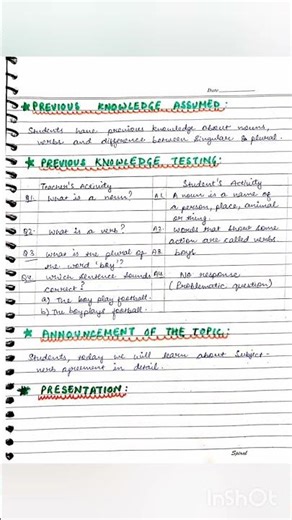 Date
★ PREVIOUS KNOWLEDGE ASSUMED:
Students have previous knowledge about nouns,
verbs and difference between singular & plural.
★ PREVIOUS KNOWLEDGE TESTING:
Teacher's Activity Student's Activity
Q1. What is a noun? A1. A noun is a name of
a person, place, animal
or thing.
Q2. What is a verb? A2. Words that show some
action are called verbs
Q3. What is the plural of A3. boys
the word 'boy'?
Q4. Which sentence sounds A4. No response
correct? (Problematic question)
a) The boy play football.
b) The boy plays football.
★ ANNOUNCEMENT OF THE TOPIC:
Students, today we will learn about subject-
verb agreement in detail.
★ PRESENTATION:
Spiral
InShOt